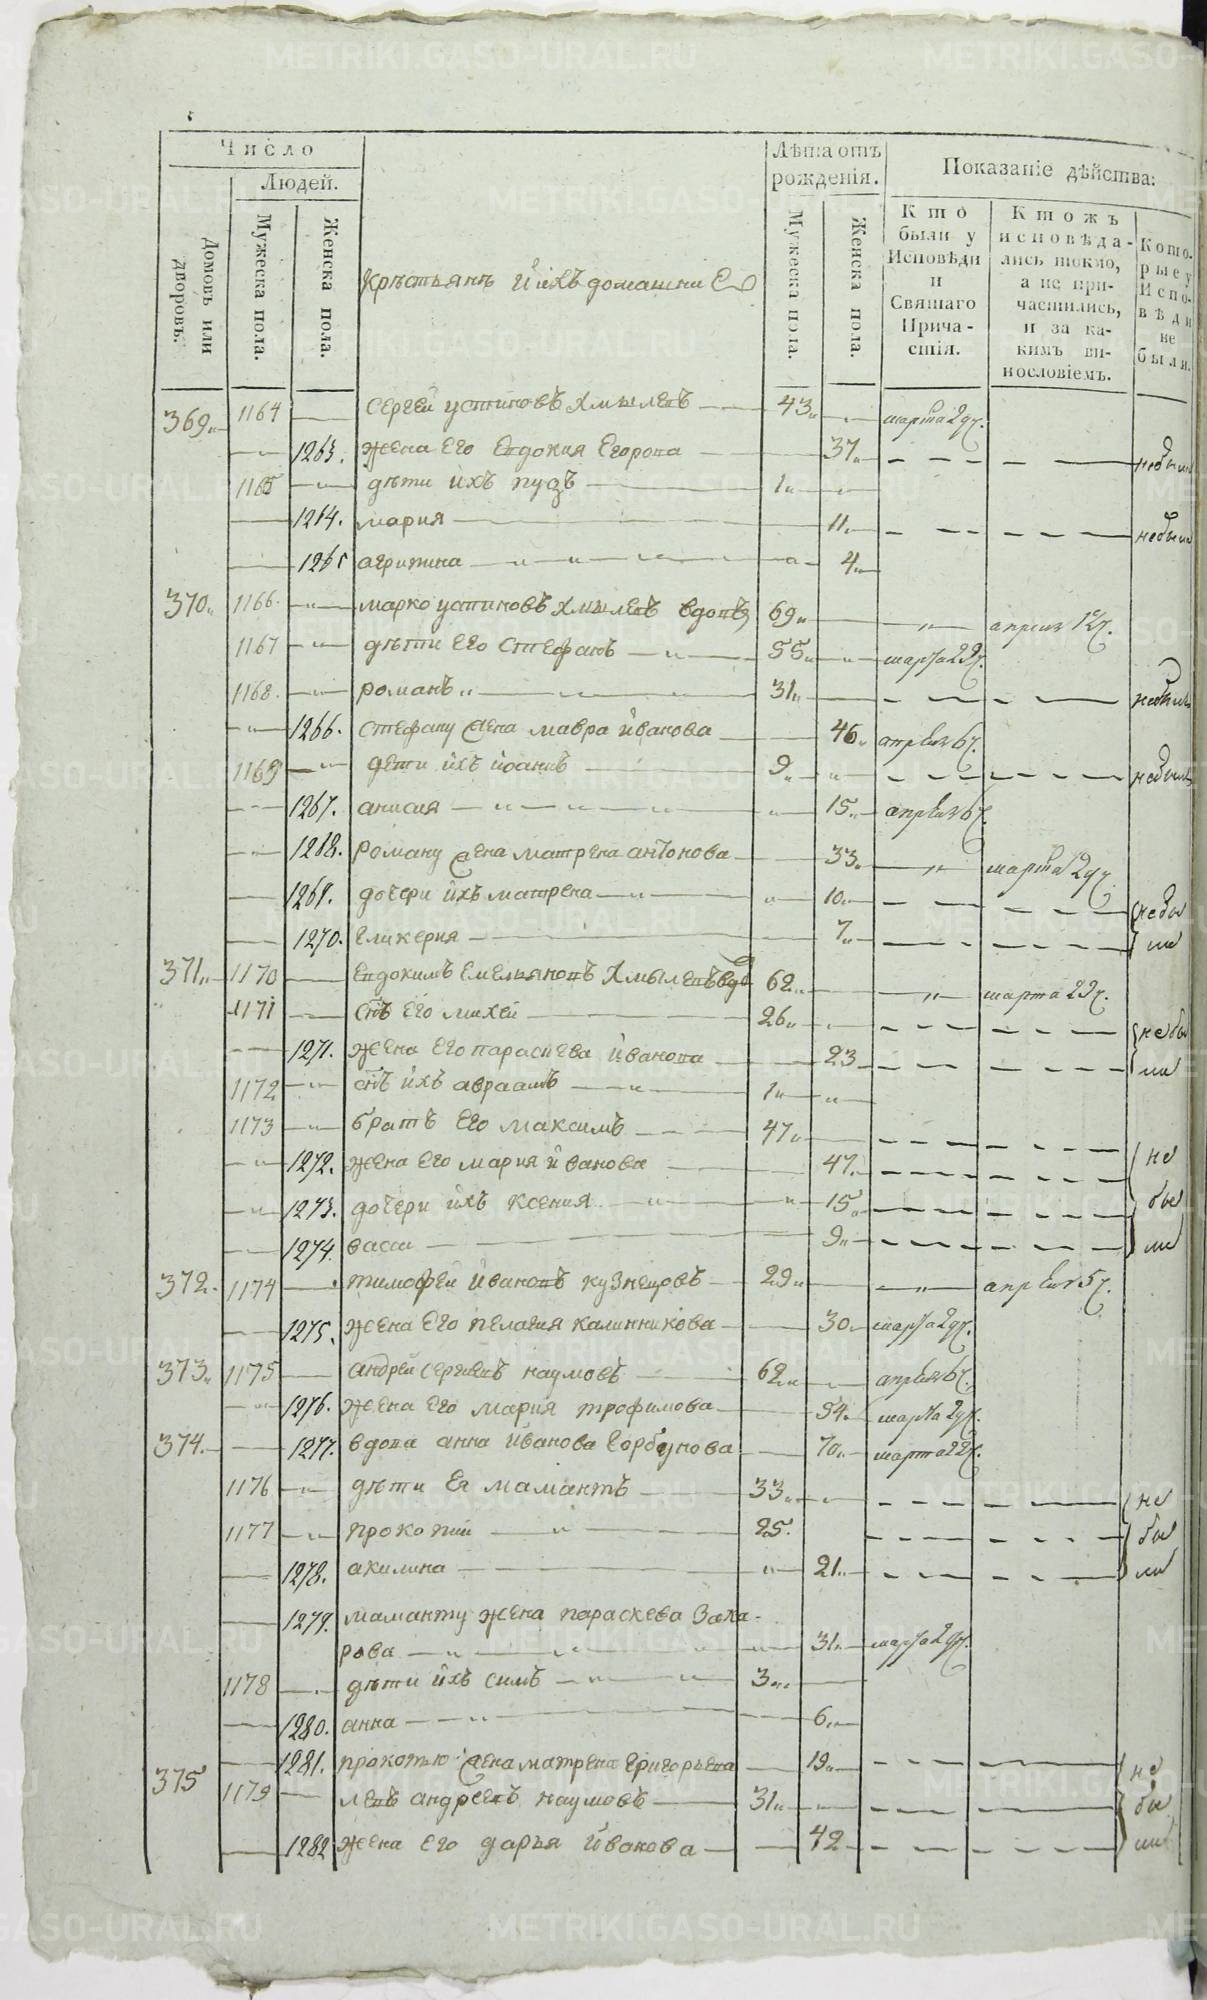 Число
Людей.
Домовъ или дворовъ.
Мужеска пола.
Женска пола.
Крѣстьянъ и ихъ домашни
Лѣта отъ рожденія.
Мужеска пола.
Женска пола.
Показаніе дѣйства:
Кто были у Исповѣди и Святаго Причастія.
Ктожъ исповѣдались токмо, а не причастились, и за какимъ винословіемъ.
Которые у Исповѣди не были.
369 1164 Сергей устиновъ Хмылевъ 43 марта 29ч.
1263. жена его Евдокия Егорова 37 небыли
1165 дѣти ихъ пудъ 1
1264. мария 11 небыли
1265 агрипина 4
370 1166 марко устиновъ Хмылевъ вдовъ 69 апреля 12ч.
1167 дѣти его Стефанъ 55 марта 29ч.
1168 романъ 31 небыли
1266. стефану жена мавра иванова 46 апреля 6ч.
1169 дети ихъ иоанъ 9 небылъ
1267. анисия 15 апреля 6ч.
1268. роману жена матрена антонова 33 марта 29ч.
1269. дочери ихъ матрена 10 небы
1270. гликерия 7 ли
371 1170 Евдокимъ Емельяновъ Хмылевъ вдо 62 марта 29ч.
1171 снъ его михей 26 небы
1271. жена его параскева иванова 23 ли
1172 снъ ихъ авраамъ 1
1173 братъ его максимъ 47
1272. жена его мария иванова 47 не
1273. дочери ихъ ксения 15 бы
1274. васса 9 ли
372. 1174 тимофей ивановъ кузнецовъ 29 апреля 5ч.
1275. жена его пелагия калинникова 30 марта 29ч.
373 1175 андрей сергиевъ наумовъ 62 апреля 6ч.
1276. жена его мария трофимова 54 марта 29ч.
374. 1277. вдова анна иванова Горбунова 70 марта 22ч.
1176 дѣти ея мамантъ 33 не
1177 прокопий 25. бы
1278. акилина 21 ли
1279. маманту жена параскева заха-
рова 31 марта 29ч.
1178 дѣти ихъ симъ 3
1280. анна 6
1281. прокопью жена матрена григорьева 19 не
375 1179 левъ андреевъ наумовъ 31 бы
1282 жена его дарья иванова 42 ли
METRIKI.GASO-URAL.RU